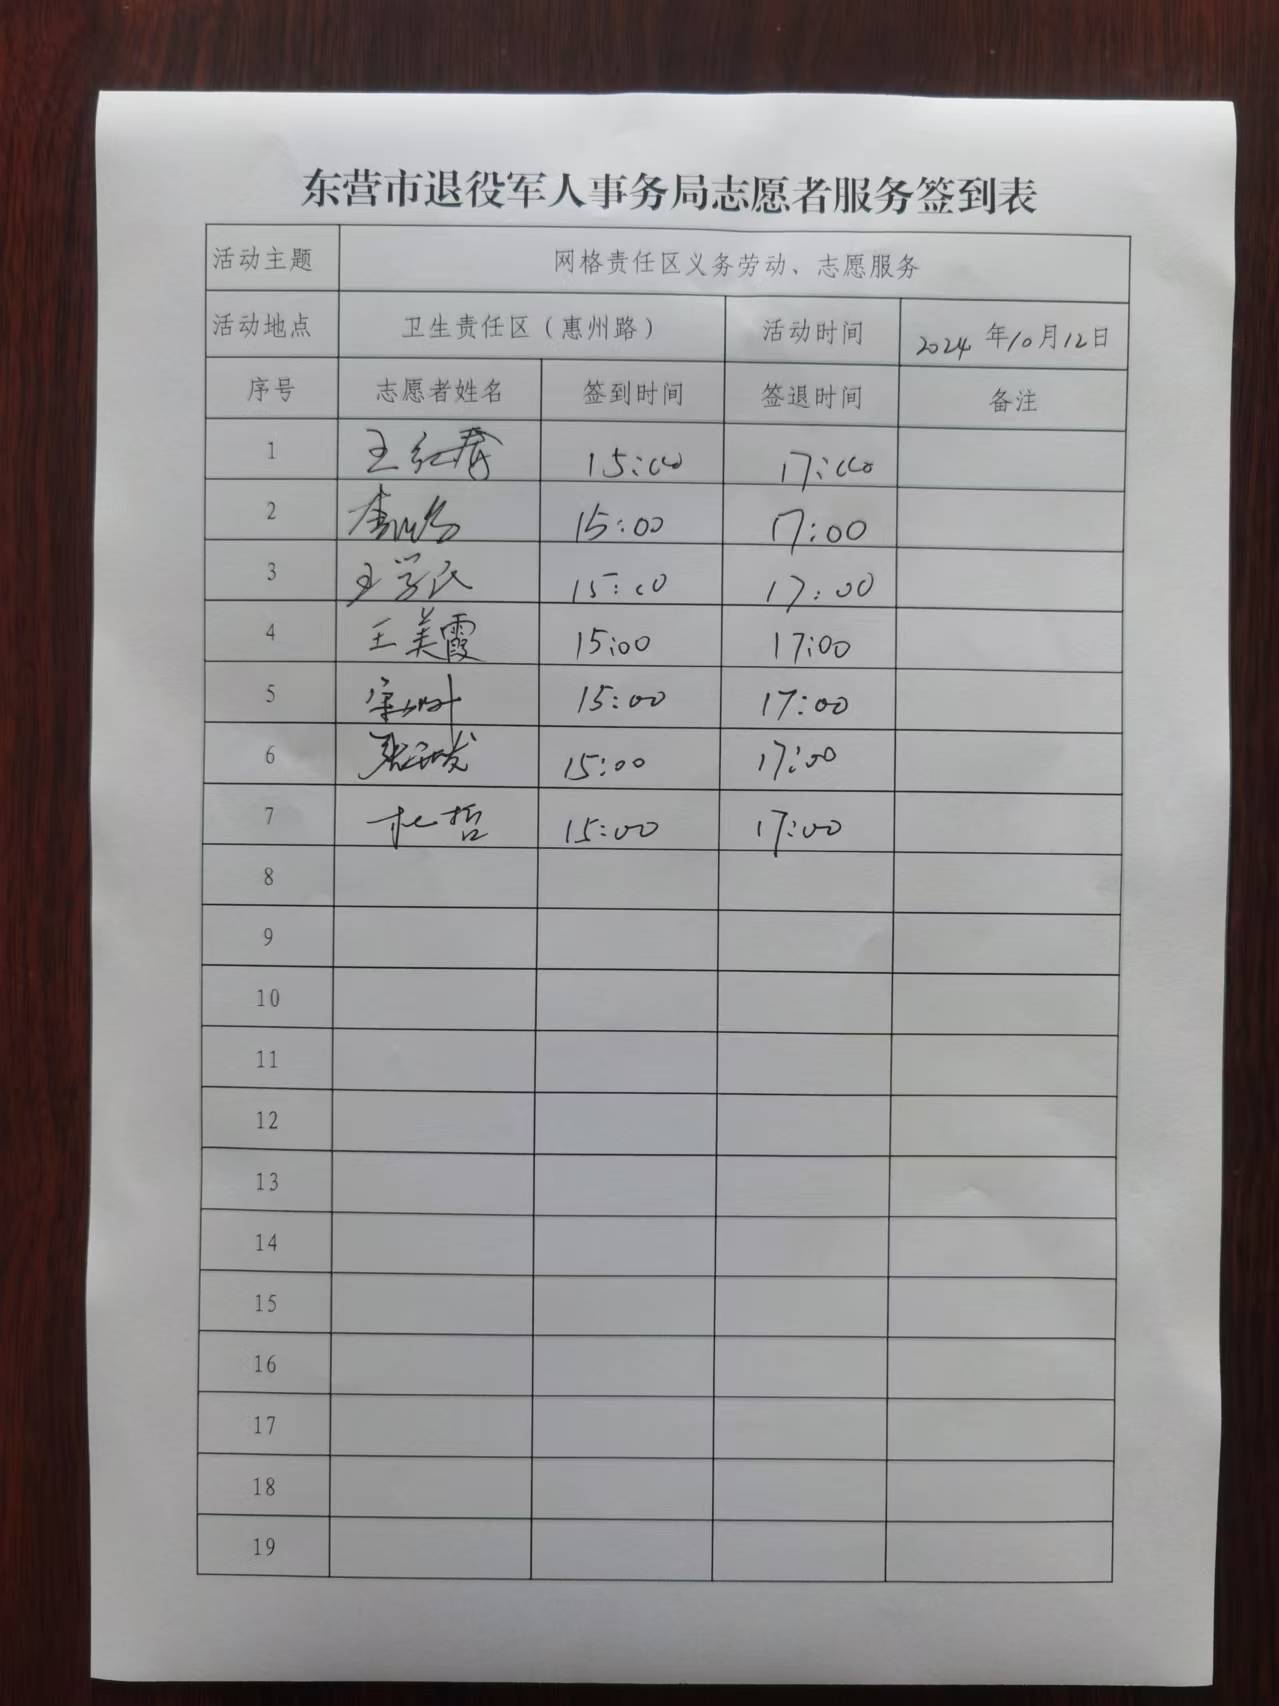 东营市退役军人事务局志愿者服务签到表
活动主题 网格责任区义务劳动、志愿服务
活动地点 卫生责任区（惠州路） 活动时间 2024年10月12日
序号 志愿者姓名 签到时间 签退时间 备注
1 王红春 15:00 17:00
2 15:00 17:00
3 王学民 15:00 17:00
4 王美霞 15:00 17:00
5 15:00 17:00
6 15:00 17:00
7 杜哲 15:00 17:00
8
9
10
11
12
13
14
15
16
17
18
19